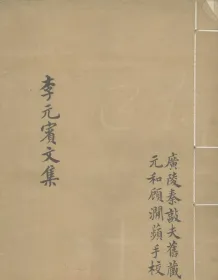 李元賓文集
廣陵秦敦夫舊藏
元和顧澗蘋手校